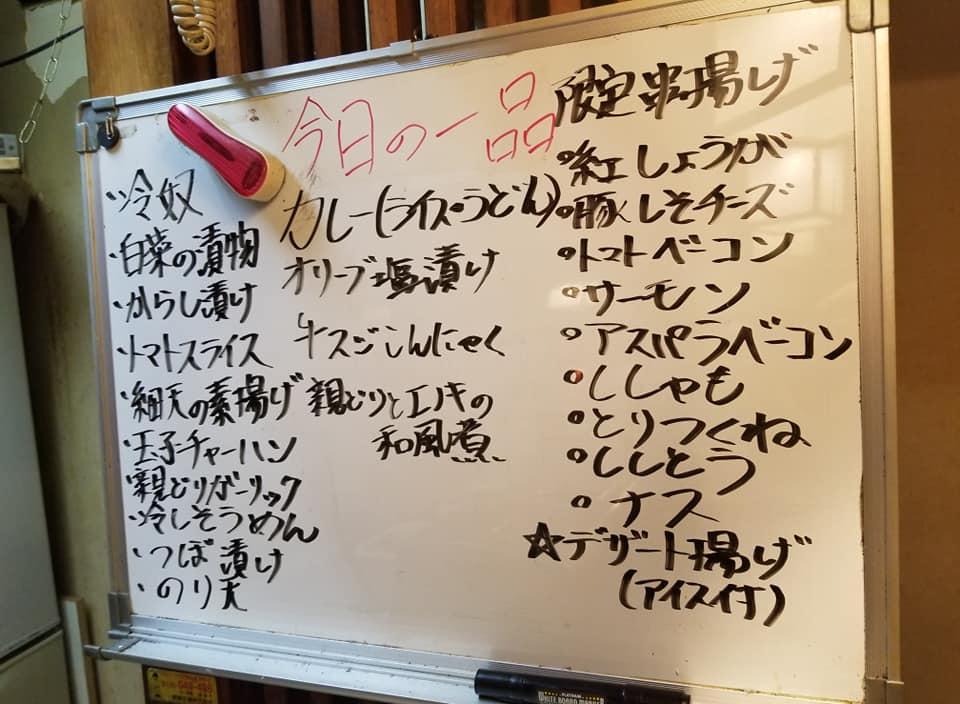 今日の一品
・冷奴
・白菜の漬物
・からし漬け
・トマトスライス
・細天の素揚げ
・玉子チャーハン
・親どりガーリック
・冷しそうめん
・つぼ漬け
・のり天
カレー(ライス・うどん)
オリーブ塩漬け
牛スジこんにゃく
親どりとエノキの
和風煮
限定串揚げ
○紅しょうが
○豚しそチーズ
○トマトベーコン
○サーモン
○アスパラベーコン
○ししゃも
○とりつくね
○ししとう
○ナス
☆デザート揚げ
(アイス付)
WHITE BOARD MARKER